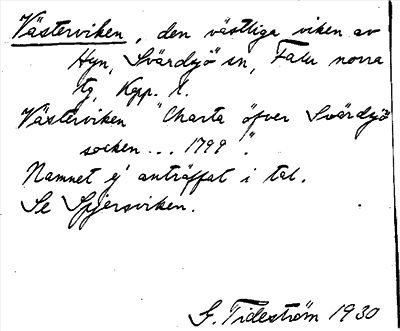 Västerviken, den västliga viken av
Hyn, Svärdsjö sn, Falu norra
tg, Kpp. l.
Västerviken "Charta öfver Svärdsjö
socken ... 1799".
Namnet ej anträffat i tal.
Se Spjersviken.
G. Tideström 1930